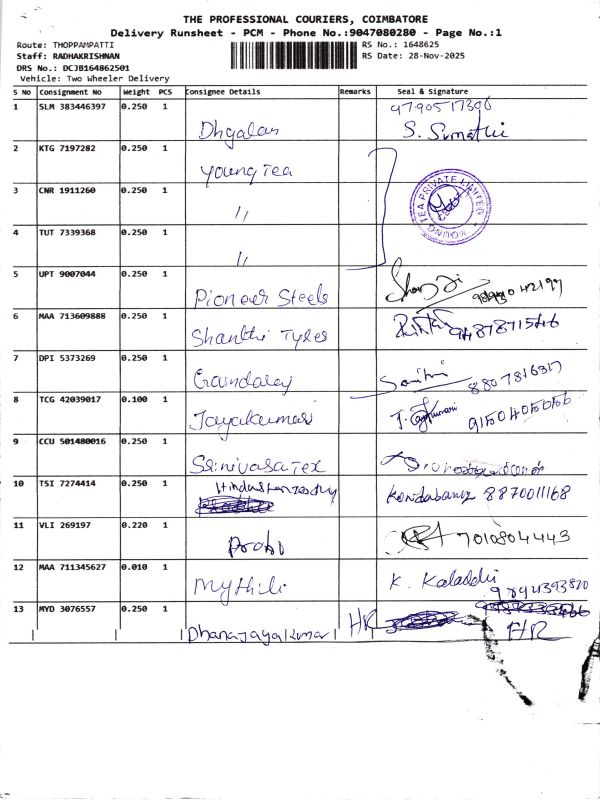 THE PROFESSIONAL COURIERS, COIMBATORE
Delivery Runsheet - PCM - Phone No.:9047080280 - Page No.:1
Route: THOPPAMPATTI
Staff: RADHAKRISHNAN
DRS No.: DCJB164862501
Vehicle: Two Wheeler Delivery
RS No.: 1648625
RS Date: 28-Nov-2025
S No Consignment No Weight PCS Consignee Details Remarks Seal & Signature
1 SLM 383446397 0.250 1 Dhyalan 9790517396
S. Sumathi
2 KTG 7197282 0.250 1 Young Tea
YOUNG TEA PRIVATE LIMITED
3 CNR 1911260 0.250 1 "
4 TUT 7339368 0.250 1 "
5 UPT 9007044 0.250 1 Pioneer Steels
6 MAA 713609888 0.250 1 Shanthi Tyres 9487871546
7 DPI 5373269 0.250 1 8807816317
8 TCG 42039017 0.100 1 Jayakumar 9150405056
9 CCU 501480016 0.250 1 Srinivasa Tex
10 TSI 7274414 0.250 1 8870011168
11 VLI 269197 0.220 1 7010804443
12 MAA 711345627 0.010 1 Mythili K. 9894393820
13 MYD 3076557 0.250 1 Dhanajayakumar HR
HR